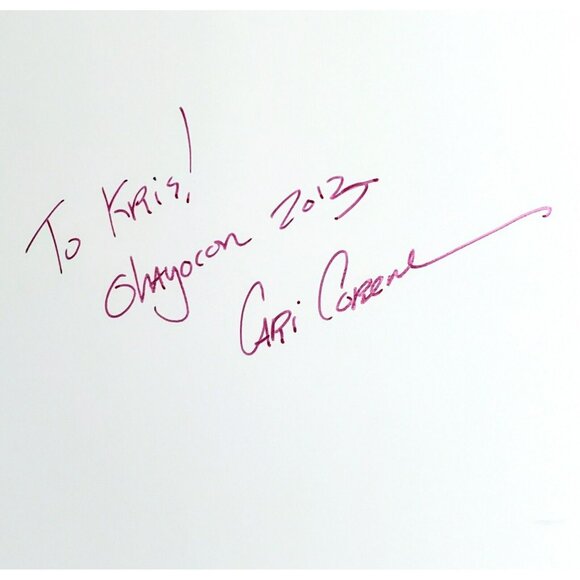 To Kris!
Ohayocon 2013
Cari Corene